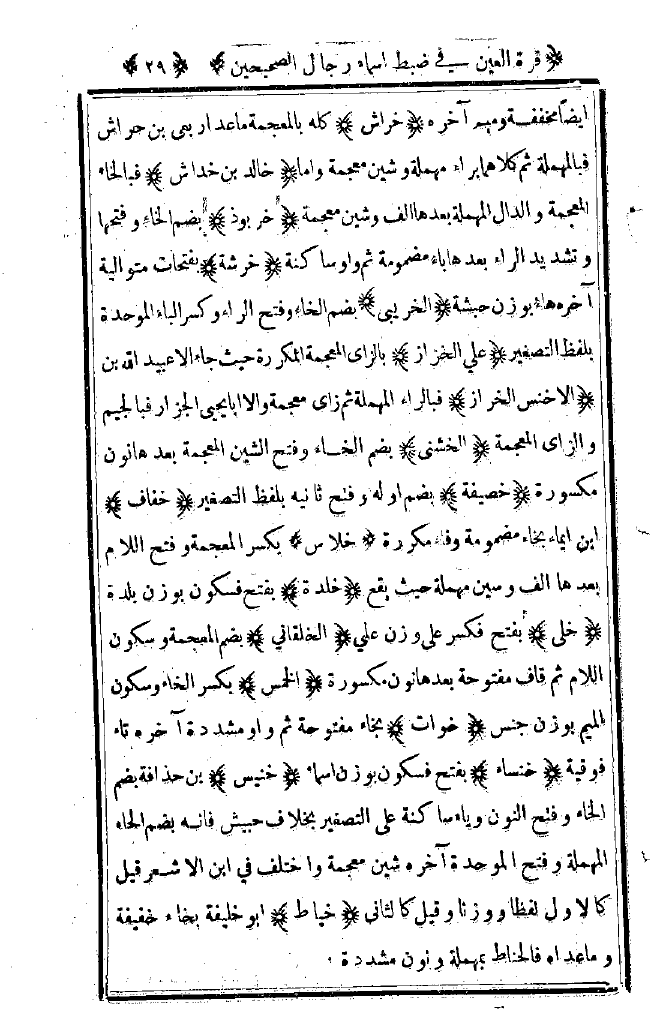 ﴿ قرة العين في ضبط اسماء رجال الصحيحين ﴾ ﴿ ٢٩ ﴾
ايضاً مخففة وميم آخره ﴿ خراش ﴾ كله بالمعجمة ماعدا ربعي بن حراش
فبالمهملة ثم كلاهما براء مهملة وشين معجمة واما ﴿ خالد بن خداش ﴾ فبالخاء
المعجمة والدال المهملة بعدها الف وشين معجمة ﴿ خربوذ ﴾ بضم الخاء وفتحها
وتشديد الراء بعدها باء مضمومة ثم واو ساكنة ﴿ خرشة ﴾ بفتحات متوالية
آخره هاء بوزن حبشة ﴿ الخريبي ﴾ بضم الخاء وفتح الراء وكسر الباء الموحدة
بلفظ التصغير ﴿ علي الخزاز ﴾ بالزاى المعجمة المكررة حيث جاء الا عبيد الله بن
﴿ الاخنس الخراز ﴾ فبالراء المهملة ثم زاى معجمة والا ابا يحيى الجزار فبالجيم
والزاى المعجمة ﴿ الخشنى ﴾ بضم الخاء وفتح الشين المعجمة بعدها نون
مكسورة ﴿ خصيفة ﴾ بضم اوله وفتح ثانيه بلفظ التصغير ﴿ خفاف ﴾
ابن ايماء بخاء مضمومة وفاء مكررة ﴿ خلاس ﴾ بكسر المعجمة وفتح اللام
بعدها الف وسين مهملة حيث يقع ﴿ خلدة ﴾ بفتح فسكون بوزن بلدة
﴿ خلى ﴾ بفتح فكسر على وزن علي ﴿ الخلقاني ﴾ بضم المعجمة وسكون
اللام ثم قاف مفتوحة بعدها نون مكسورة ﴿ الخمس ﴾ بكسر الخاء وسكون
الميم بوزن جنس ﴿ خوات ﴾ بخاء مفتوحة ثم واو مشددة آخره تاء
فوقية ﴿ خنساء ﴾ بفتح فسكون بوزن اسماء ﴿ خنيس ﴾ بن حذافة بضم
الخاء وفتح النون وياء ساكنة على التصغير بخلاف حبيش فانه بضم الحاء
المهملة وفتح الموحدة آخره شين معجمة واختلف في ابن الاشعر قيل
كالاول لفظا ووزنا وقيل كالثاني ﴿ خياط ﴾ ابو خليفة بخاء خفيفة
وماعداه فالحناط بمهملة ونون مشددة .